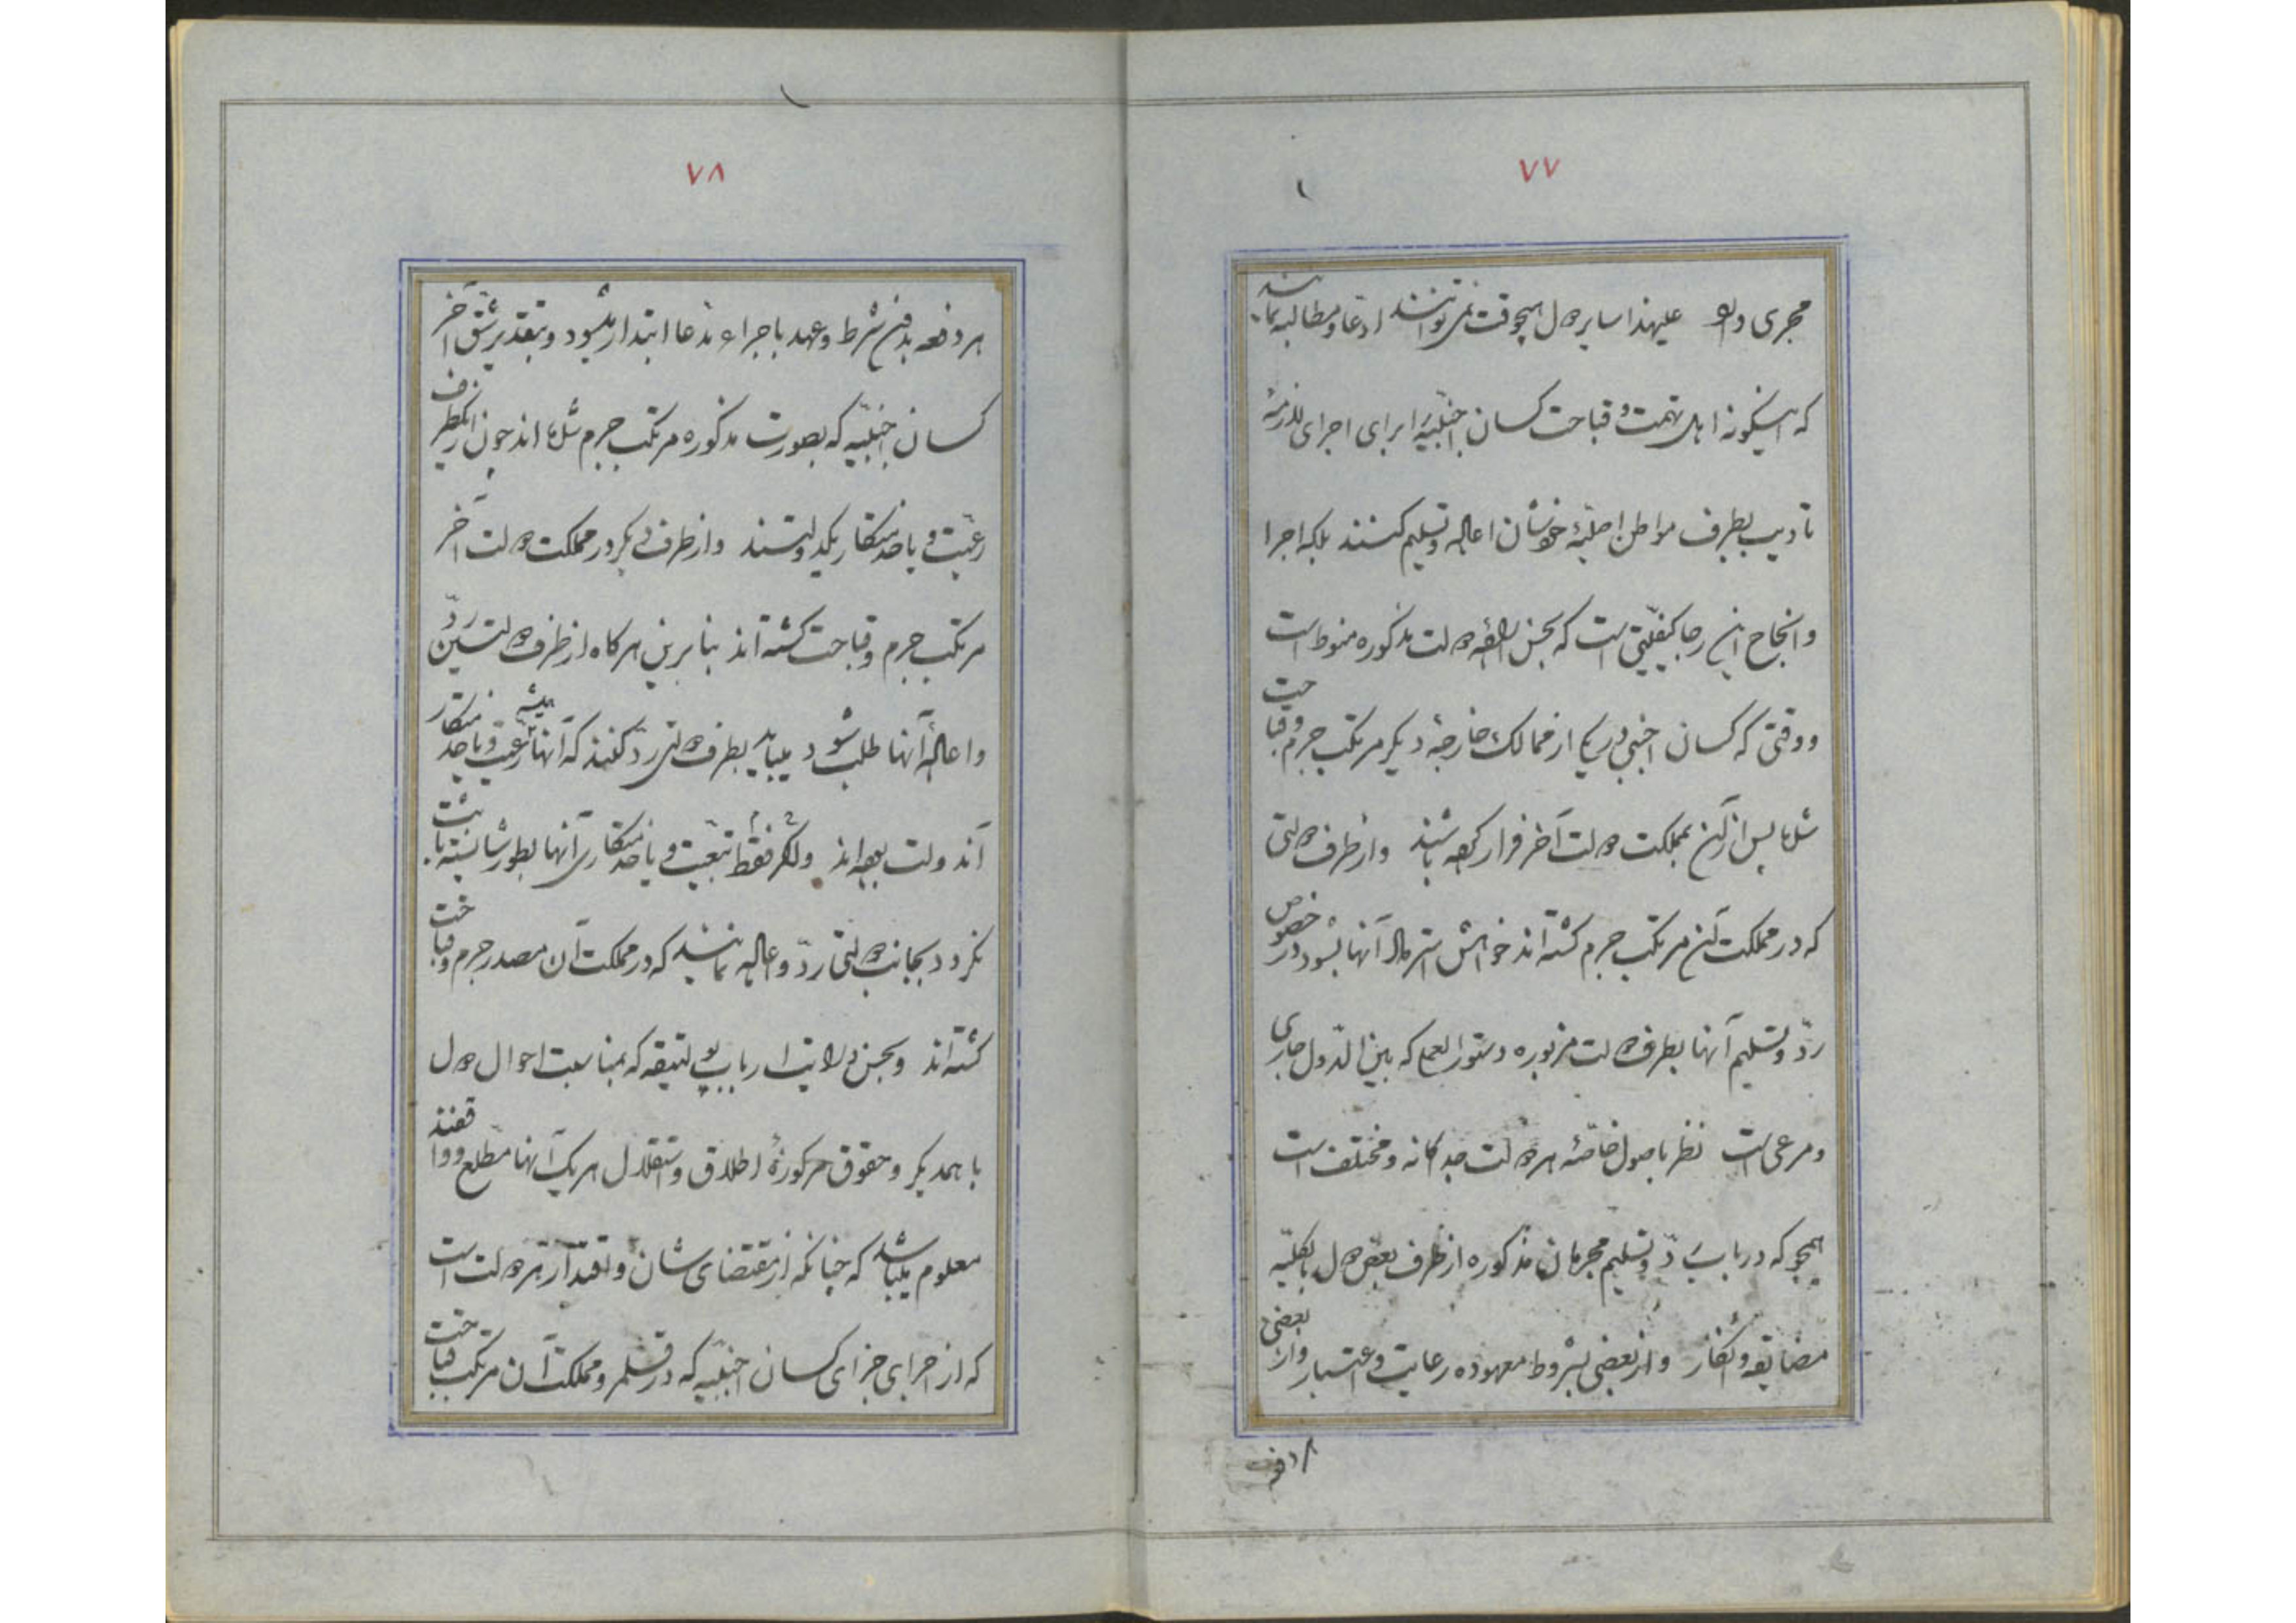 ۷۷
مجری دارد علیهذا سایر دول هیچوقت نمی توانند ادعا و مطالبه نمایند
که اینگونه اهل تهمت و قباحت کسان اجنبیه را برای اجرای لازمهٔ
تادیب بطرف مواطن اصلیهٔ خودشان اعاله و تسلیم کنند بلکه اجرا
و انجاح این رجا کیفیتی است که بحسن ارادهٔ دولت مذکوره منوط است
و وقتی که کسان اجنبی در یکی از ممالک خارجهٔ دیگر مرتکب جرم و قباحت
شده پس از آن بمملکت دولت آخر فرار کرده باشند و از طرف دولتی
که در مملکت آن مرتکب جرم گشته اند خواهش استرداد آنها بشود در خصوص
ردّ و تسلیم آنها بطرف دولت مزبوره دستور العمل که بین الدول جاری
و مرعی است نظر باصول خاصّهٔ هر دولت جداگانه و مختلف است
همچو که در باب ردّ و تسلیم مجرمان مذکوره از طرف بعض دول بالکلیّه
مضایقه و انکار و از بعضی بشروط معهوده رعایت و اعتبار و از بعضی
هر دفعه
۷۸
هر دفعه بدون شرط و عهد باجراء مدعا ابتدار میشود و بتقدیر شق آخر
کسان اجنبیه که بصورت مذکوره مرتکب جرم شده اند چون از یکطرف
رعیت و یا خدمتکار یکدولتند و از طرف دیگر در مملکت دولت آخر
مرتکب جرم و قباحت گشته اند بنابرین هرگاه از طرف دولتین ردّ
و اعالهٔ آنها طلب شود میباید بطرف دولتی ردّ کنند که آنها همیشه رعیت و یا خدمتکار
آندولت بوده اند ولکن فقط تبعیت و یا خدمتکاری آنها بطور شایسته ثابت
نگردد بجانب دولتی ردّ و اعاله نمایند که در مملکت آن مصدر جرم و قباحت
گشته اند و بحسن درایت ارباب پولتیقه که بمناسبت احوال دول
با همدیگر و حقوق مرکوزهٔ اطلاق و استقلال هر یک آنها مطّلع و واقفند
معلوم میباشد که چنانکه از مقتضای شان و اقتدار هر دولت است
که از اجرای جزای کسان اجنبیه که در قلمرو مملکت آن مرتکب قباحت